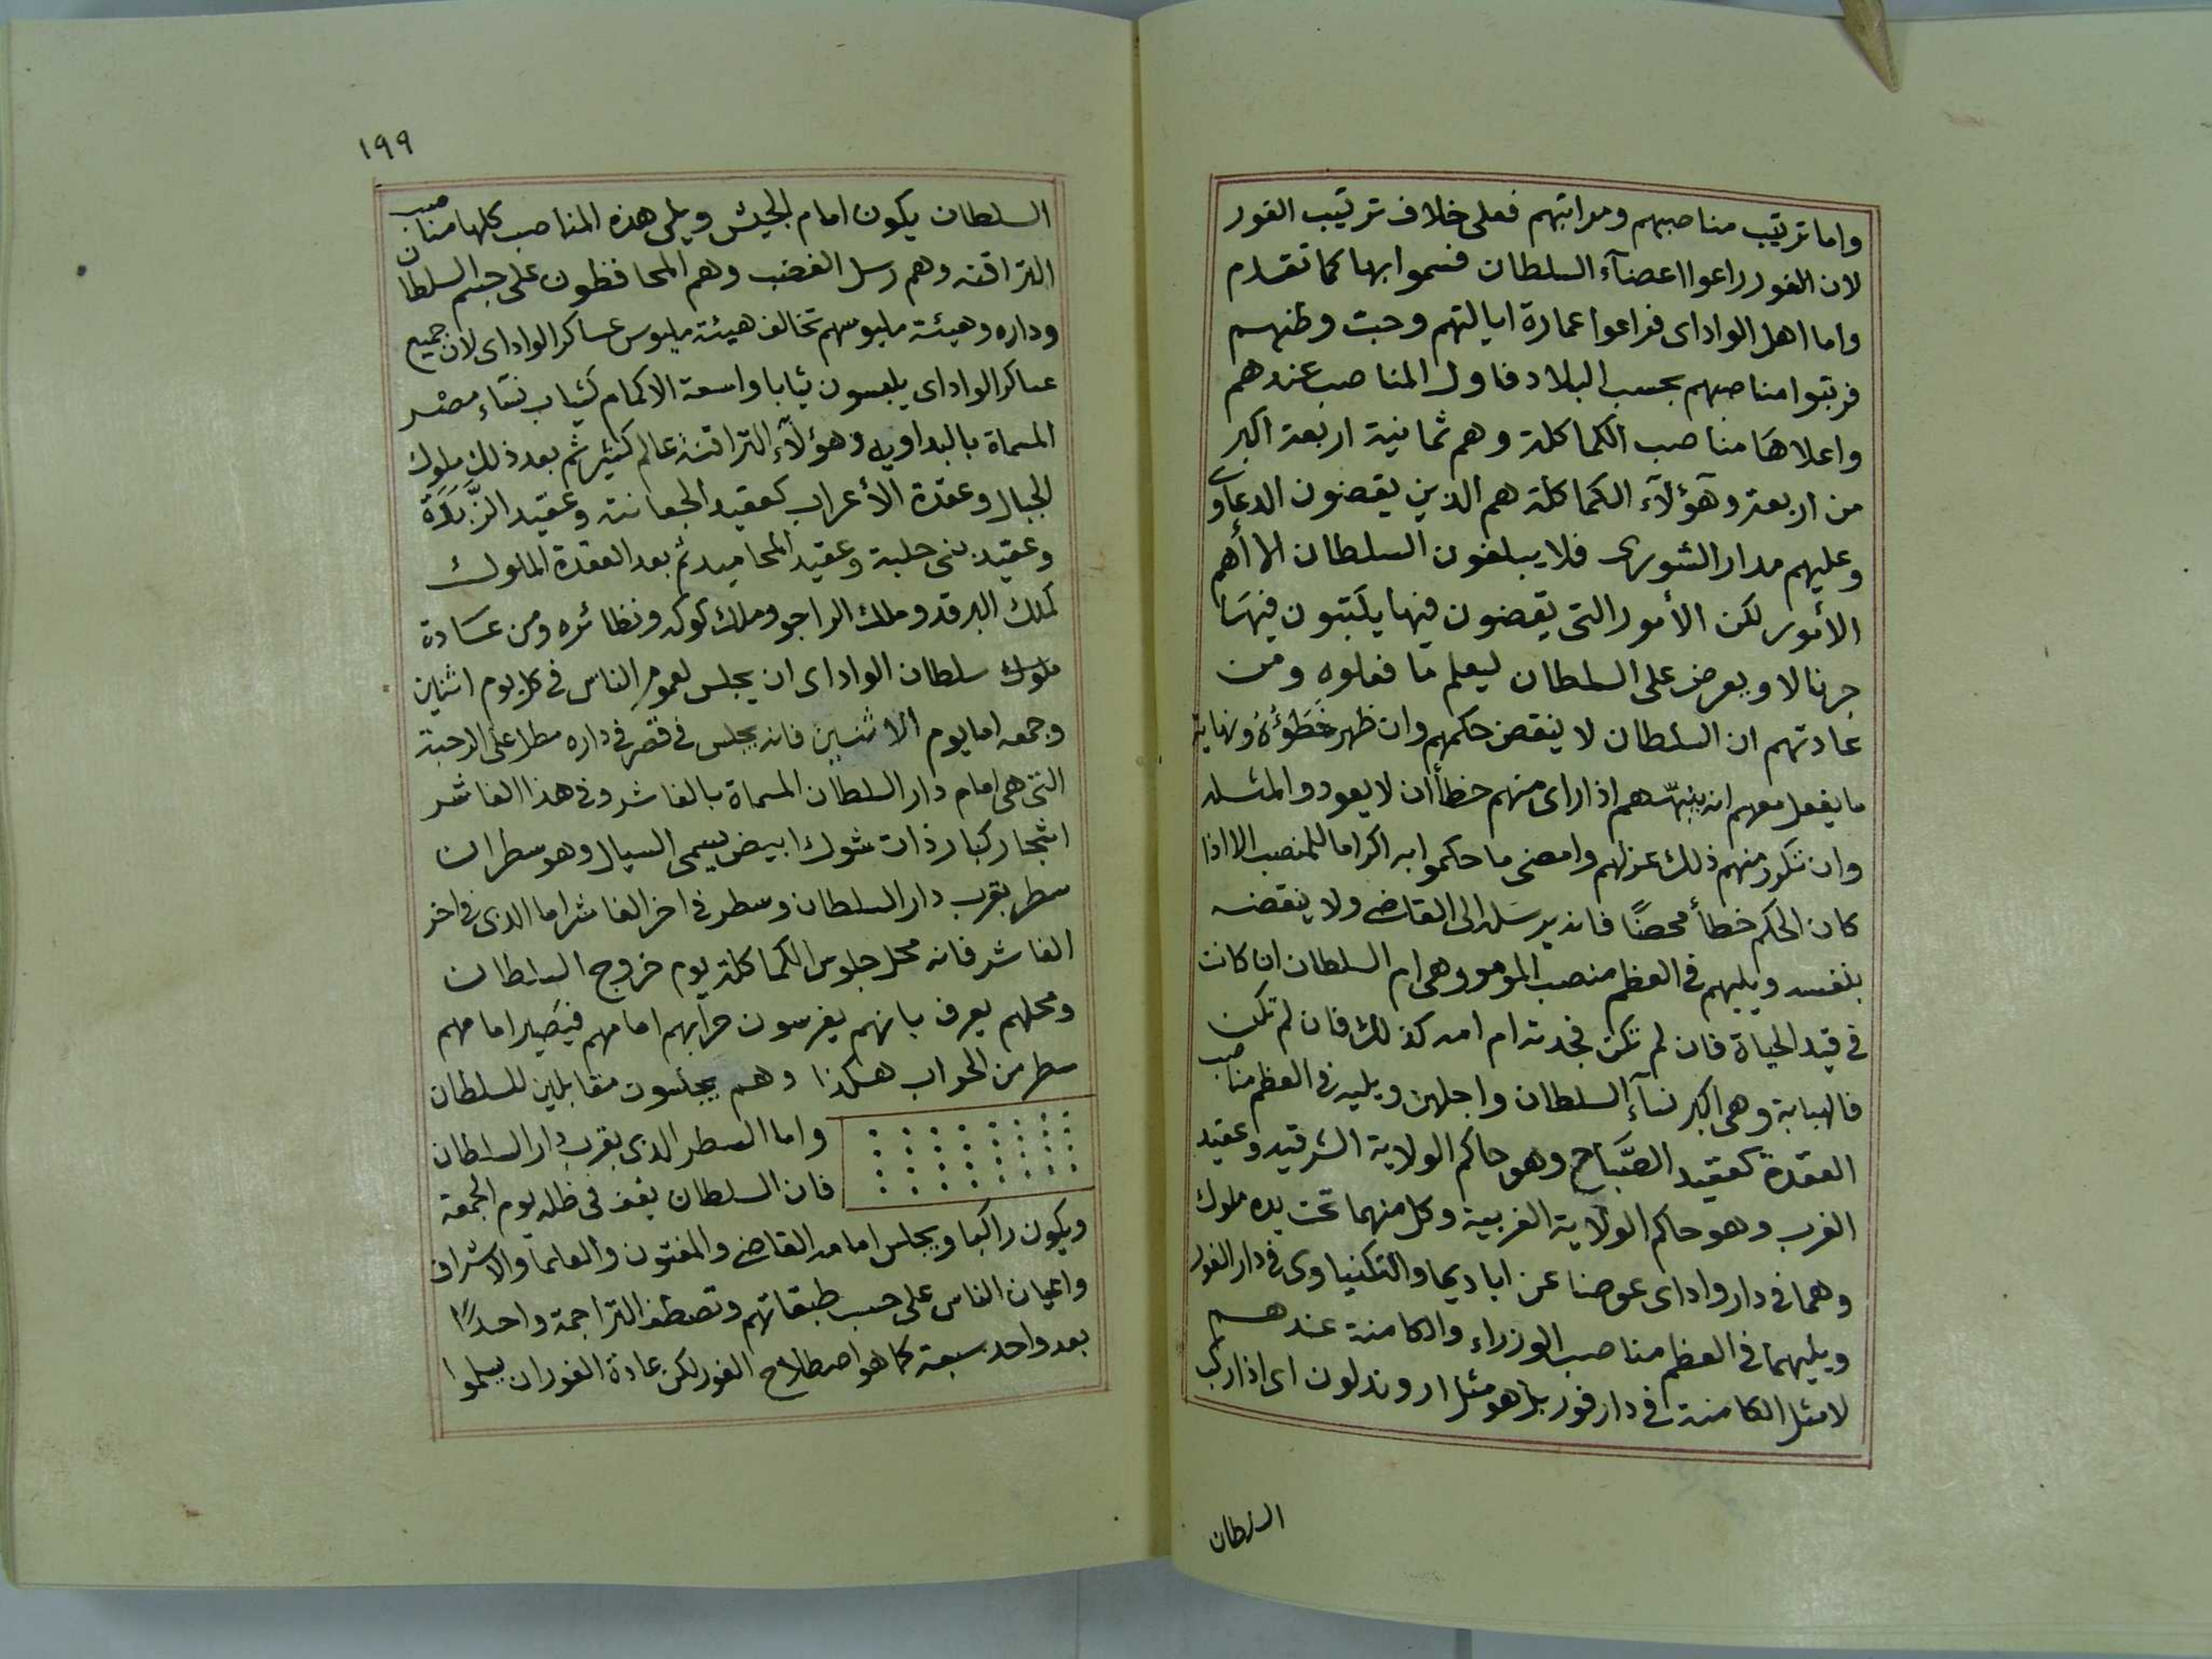 واما ترتيب مناصبهم ومراتبهم فعلى خلاف ترتيب الفور
لان الفور راعوا اعضآء السلطان فسموا بها كما تقدم
واما اهل الواداى فراعوا عمارة ايالتهم وحبت وطنهم
فرتبوا مناصبهم بحسب البلاد فاول المناصب عندهم
واعلاها مناصب الكماكلة وهم ثمانية اربعة اكبر
من اربعة وهؤلآء الكماكلة هم الذين يقضون الدعاوى
وعليهم مدار الشورى فلا يبلغون السلطان الا أهم
الأمور لكن الأمور التى يقضون فيها يكتبون فيها
جرنالا ويعرض على السلطان ليعلم ما فعلوه ومن
عادتهم ان السلطان لا ينقض حكمهم وان ظهر خطؤه ونهاية
ما يفعل معهم انه ينبّههم اذا راى منهم خطأ ان لا يعودوا لمثله
وان تكرر منهم ذلك عزلهم وامضى ما حكموا به اكراما للمنصب الا اذا
كان الحكم خطأ محضًا فانه يرسله الى القاضى ولا ينقضه
بنفسه ويليهم فى العظم منصب المومو وهى ام السلطان ان كانت
فى قيد الحياة فان لم تكن فجدته ام امه كذلك فان لم تكن
فالهبابة وهى اكبر نسآء السلطان واجلهن ويليه فى العظم مناصب
العقدة كعقيد الصَّبَاح وهو حاكم الولاية الشرقية وعقيد
الغرب وهو حاكم الولاية الغربية وكل منهما تحت يده ملوك
وهما فى دار واداى عوضا عن اباديما والتكنياوى فى دار الفور
ويليهما فى العظم مناصب الوزراء والكامنة عندهم
لا مثل الكامنة فى دار فور بل هو مثل اروندلون اى اذا ركب
السلطان
١٩٩
السلطان يكون امام الجيش ويلى هذه المناصب كلها مناصب
التراقنه وهم رسل الغضب وهم المحافظون على جسم السلطان
وداره وهيئة ملبوسهم تخالف هيئة ملبوس عساكر الواداى لان جميع
عساكر الواداى يلبسون ثيابا واسعة الاكمام كثياب نساء مصر
المسماة بالبداويه وهؤلآء التراقنة عالم كثير ثم بعد ذلك ملوك
الجبال وعقدة الأعراب كعقيد الجعانته وعقيد الزَّبَدَة
وعقيد بنى حلبة وعقيد المحاميد ثم بعد العقدة الملوك
كملك البرقد وملك الداجو وملك كوكه ونظائره ومن عادة
ملوك سلطان الواداى ان يجلس لعموم الناس فى كل يوم اثنين
وجمعه اما يوم الاثنين فانه يجلس فى قصر فى داره مطل على الرحبة
التى هى امام دار السلطان المسماة بالفاشر وفى هذا الفاشر
اشجار كبار ذات شوك ابيض يسمى السيال وهو سطران
سطر بقرب دار السلطان وسطر فى اخر الفاشر اما الذى فى اخر
الفاشر فانه محل جلوس الكماكلة يوم خروج السلطان
ومحلهم يعرف بانهم يغرسون حرابهم امامهم فيصير امامهم
سطر من الحراب هكذا وهم يجلسون مقابلين للسلطان
واما السطر الذى بقرب دار السلطان
فان السلطان يقف فى ظله يوم الجمعة
ويكون راكبا ويجلس امامه القاضى والمفتون والعلمآ والاشراف
واعيان الناس على حسب طبقاتهم وتصطف التراجمة واحدًا
بعد واحد سبعة كما هو اصطلاح الفور لكن عادة الفور ان يسلموا